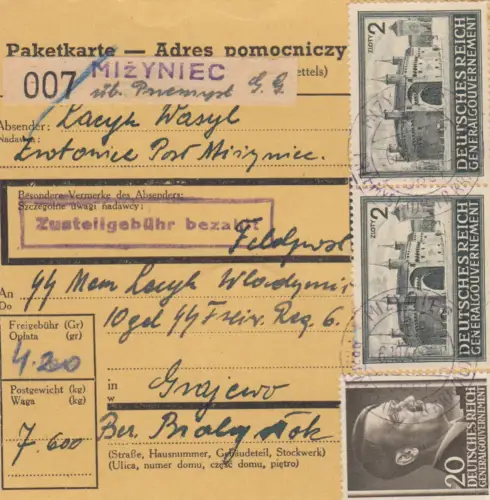 Paketkarte — Adres pomocniczy
ettels)
007
MIŻYNIEC
üb. Przemysl G. G.
Absender:
Nadawca:
Kacyk Wasyl
Zrotowice Post Miżyniec.
Besondere Vermerke des Absenders:
Szczególne uwagi nadawcy:
Zustellgebühr bezahlt
Feldpost
An
Do
SS Mem Kacyk Wlodymir
10 gal SS Freiw. Reg. 6.
Freigebühr (Gr)
Opłata (gr)
4.20
Postgewicht (kg)
Waga (kg)
7.600
in
w
Grajewo
Ber. Białystok
(Straße, Hausnummer, Gebäudeteil, Stockwerk)
(Ulica, numer domu, część domu, piętro)
2
ZŁOTY
DEUTSCHES REICH
GENERALGOUVERNEMENT
2
ZŁOTY
DEUTSCHES REICH
GENERALGOUVERNEMENT
20
DEUTSCHES REICH
GENERALGOUVERNEMENT